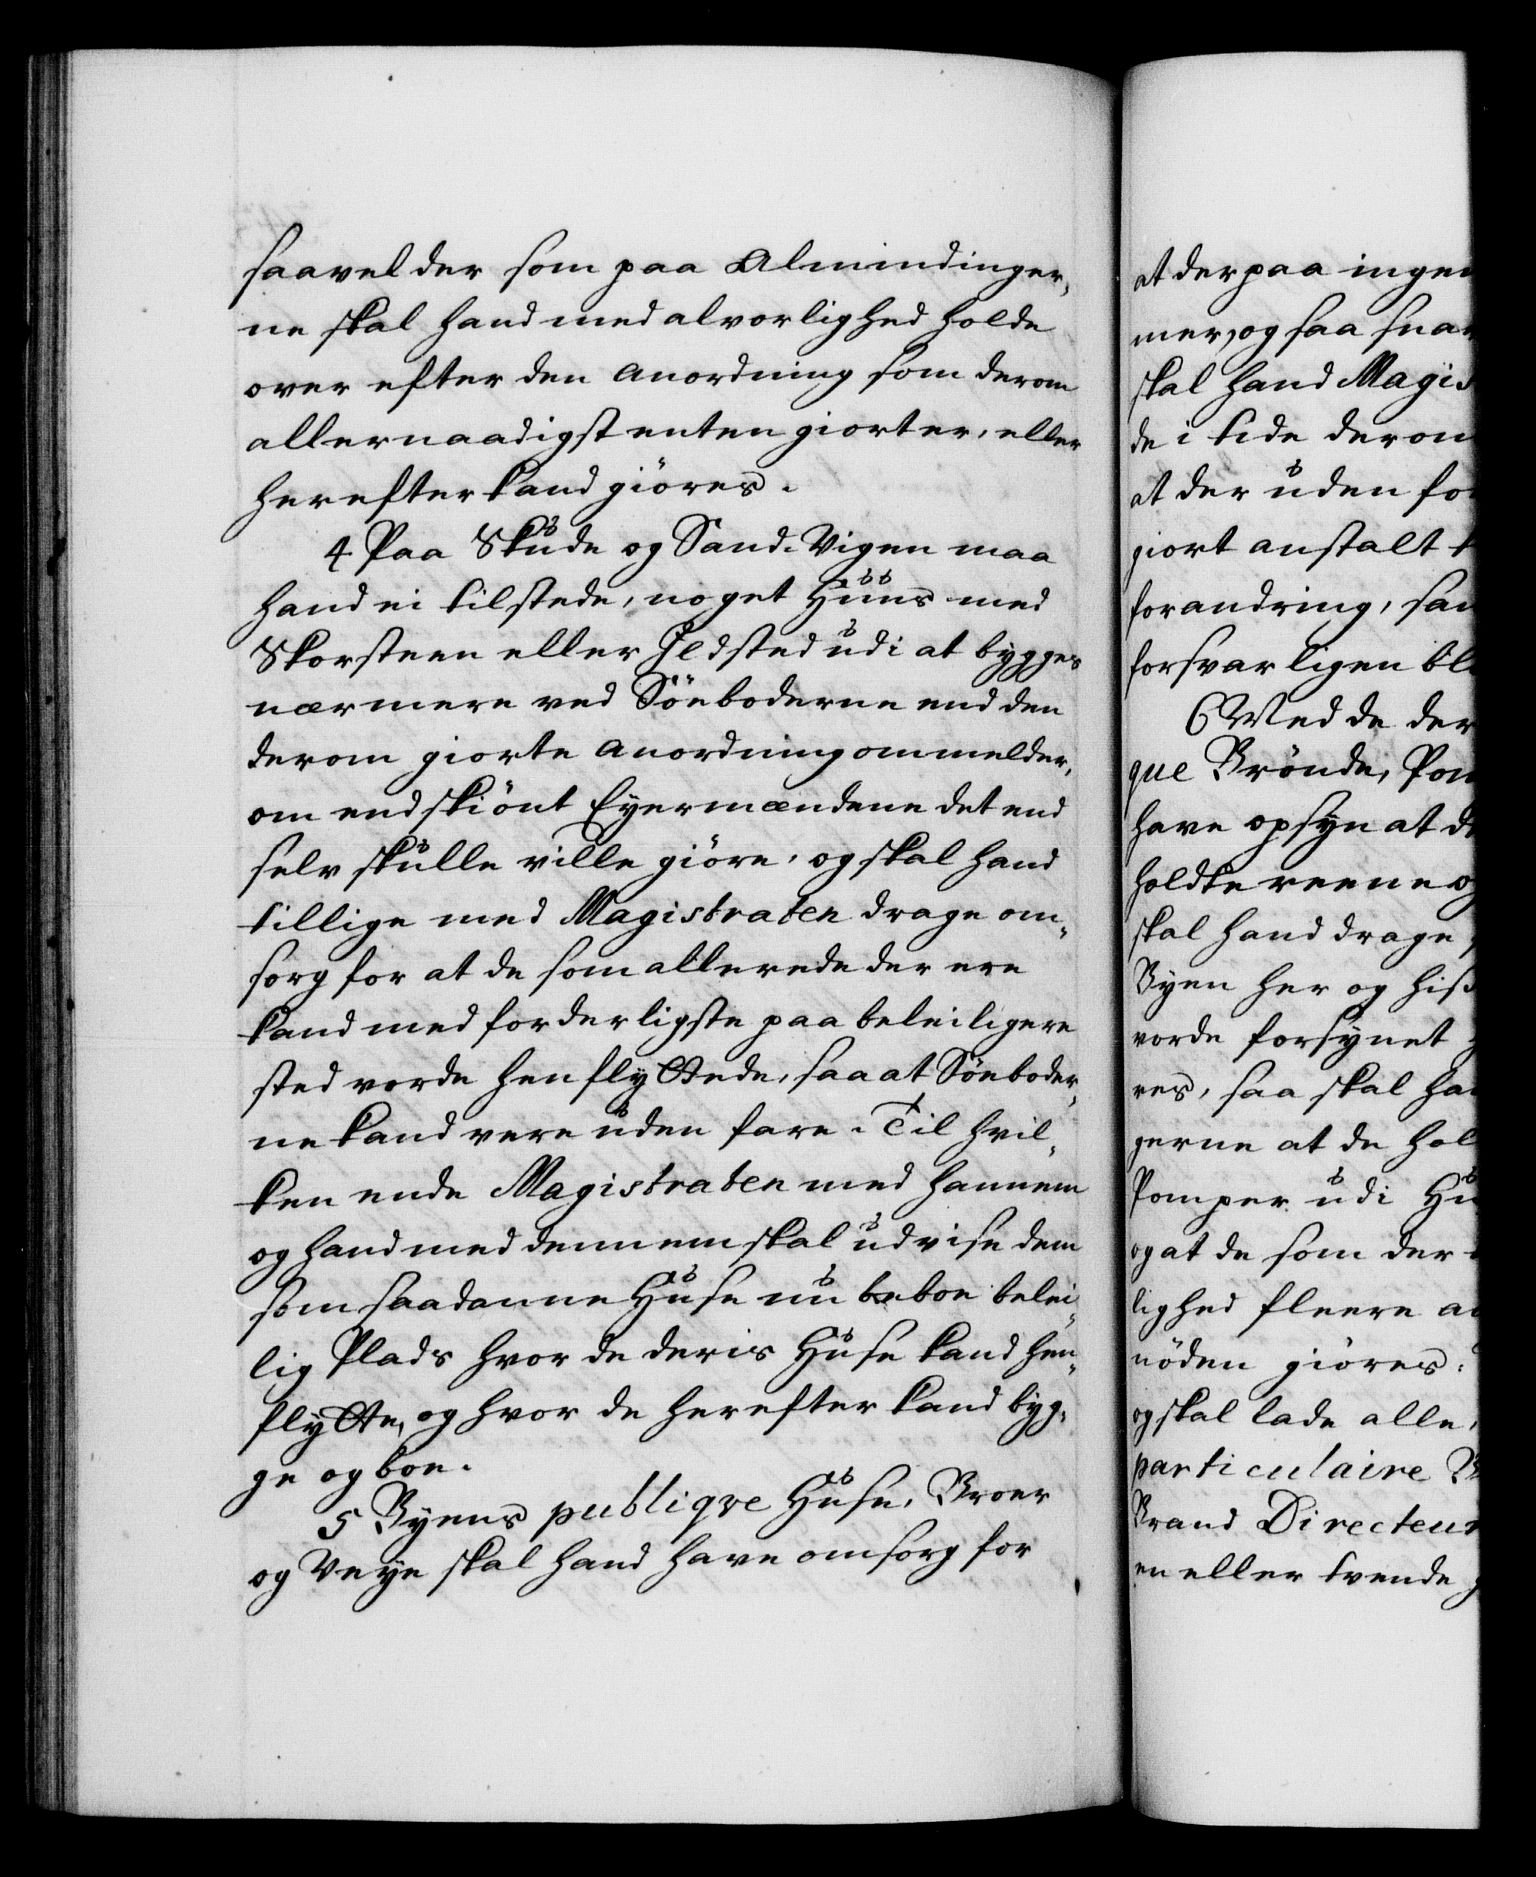 saavel der som paa Almindinger,
ne skal hand med alvorlighed holde
over efter den anordning som derom
allernaadigst enten giort er, eller
herefter kand giöres.
4 Paa Skude og Sand-Vigen maa
hand ei tilstede, noget Huus med
Skorsteen eller Ildsted udi at bygges
nærmere ved Söeboderne end den
derom giorte anordning ommelder,
om endskiönt Eyermændene det end
selv skulle ville giöre, og skal hand
tillige med Magistraten drage om,,
sorg for at de som allerede der ere
kand med forderligste paa beleiligere
sted vorde henflyttede, saa at Söeboder,,
ne kand vere uden fare. Til hvil,,
ken ende Magistraten med hannem
og hand med dennem skal udvise dem
som saadanne Huse nu beboe belei,,
lig Plads hvor de deris Huse kand hen,,
flytte, og hvor de herefter kand byg,
ge og boe.
5 Byens publiqve Huse, Broer
og Veye skal hand have omsorg for
at der paa ingen
mer, og saa snar
skal hand Magis
de i tide derom
at der uden for
giort anstalt t
forandring, saa
forsvarligen bl
6 Med de der
que Brönde, Pom
have opsyn at d
holdte reene og
skal hand drage
Byen her og hiß
vorde forsynet
res, saa skal ha
gerne at de hol
Pomper udi Hu
og at de som der
lighed fleere a
nöden giöres.
og skal lade alle,
particulaire B
Brand Directeur
en eller tvende